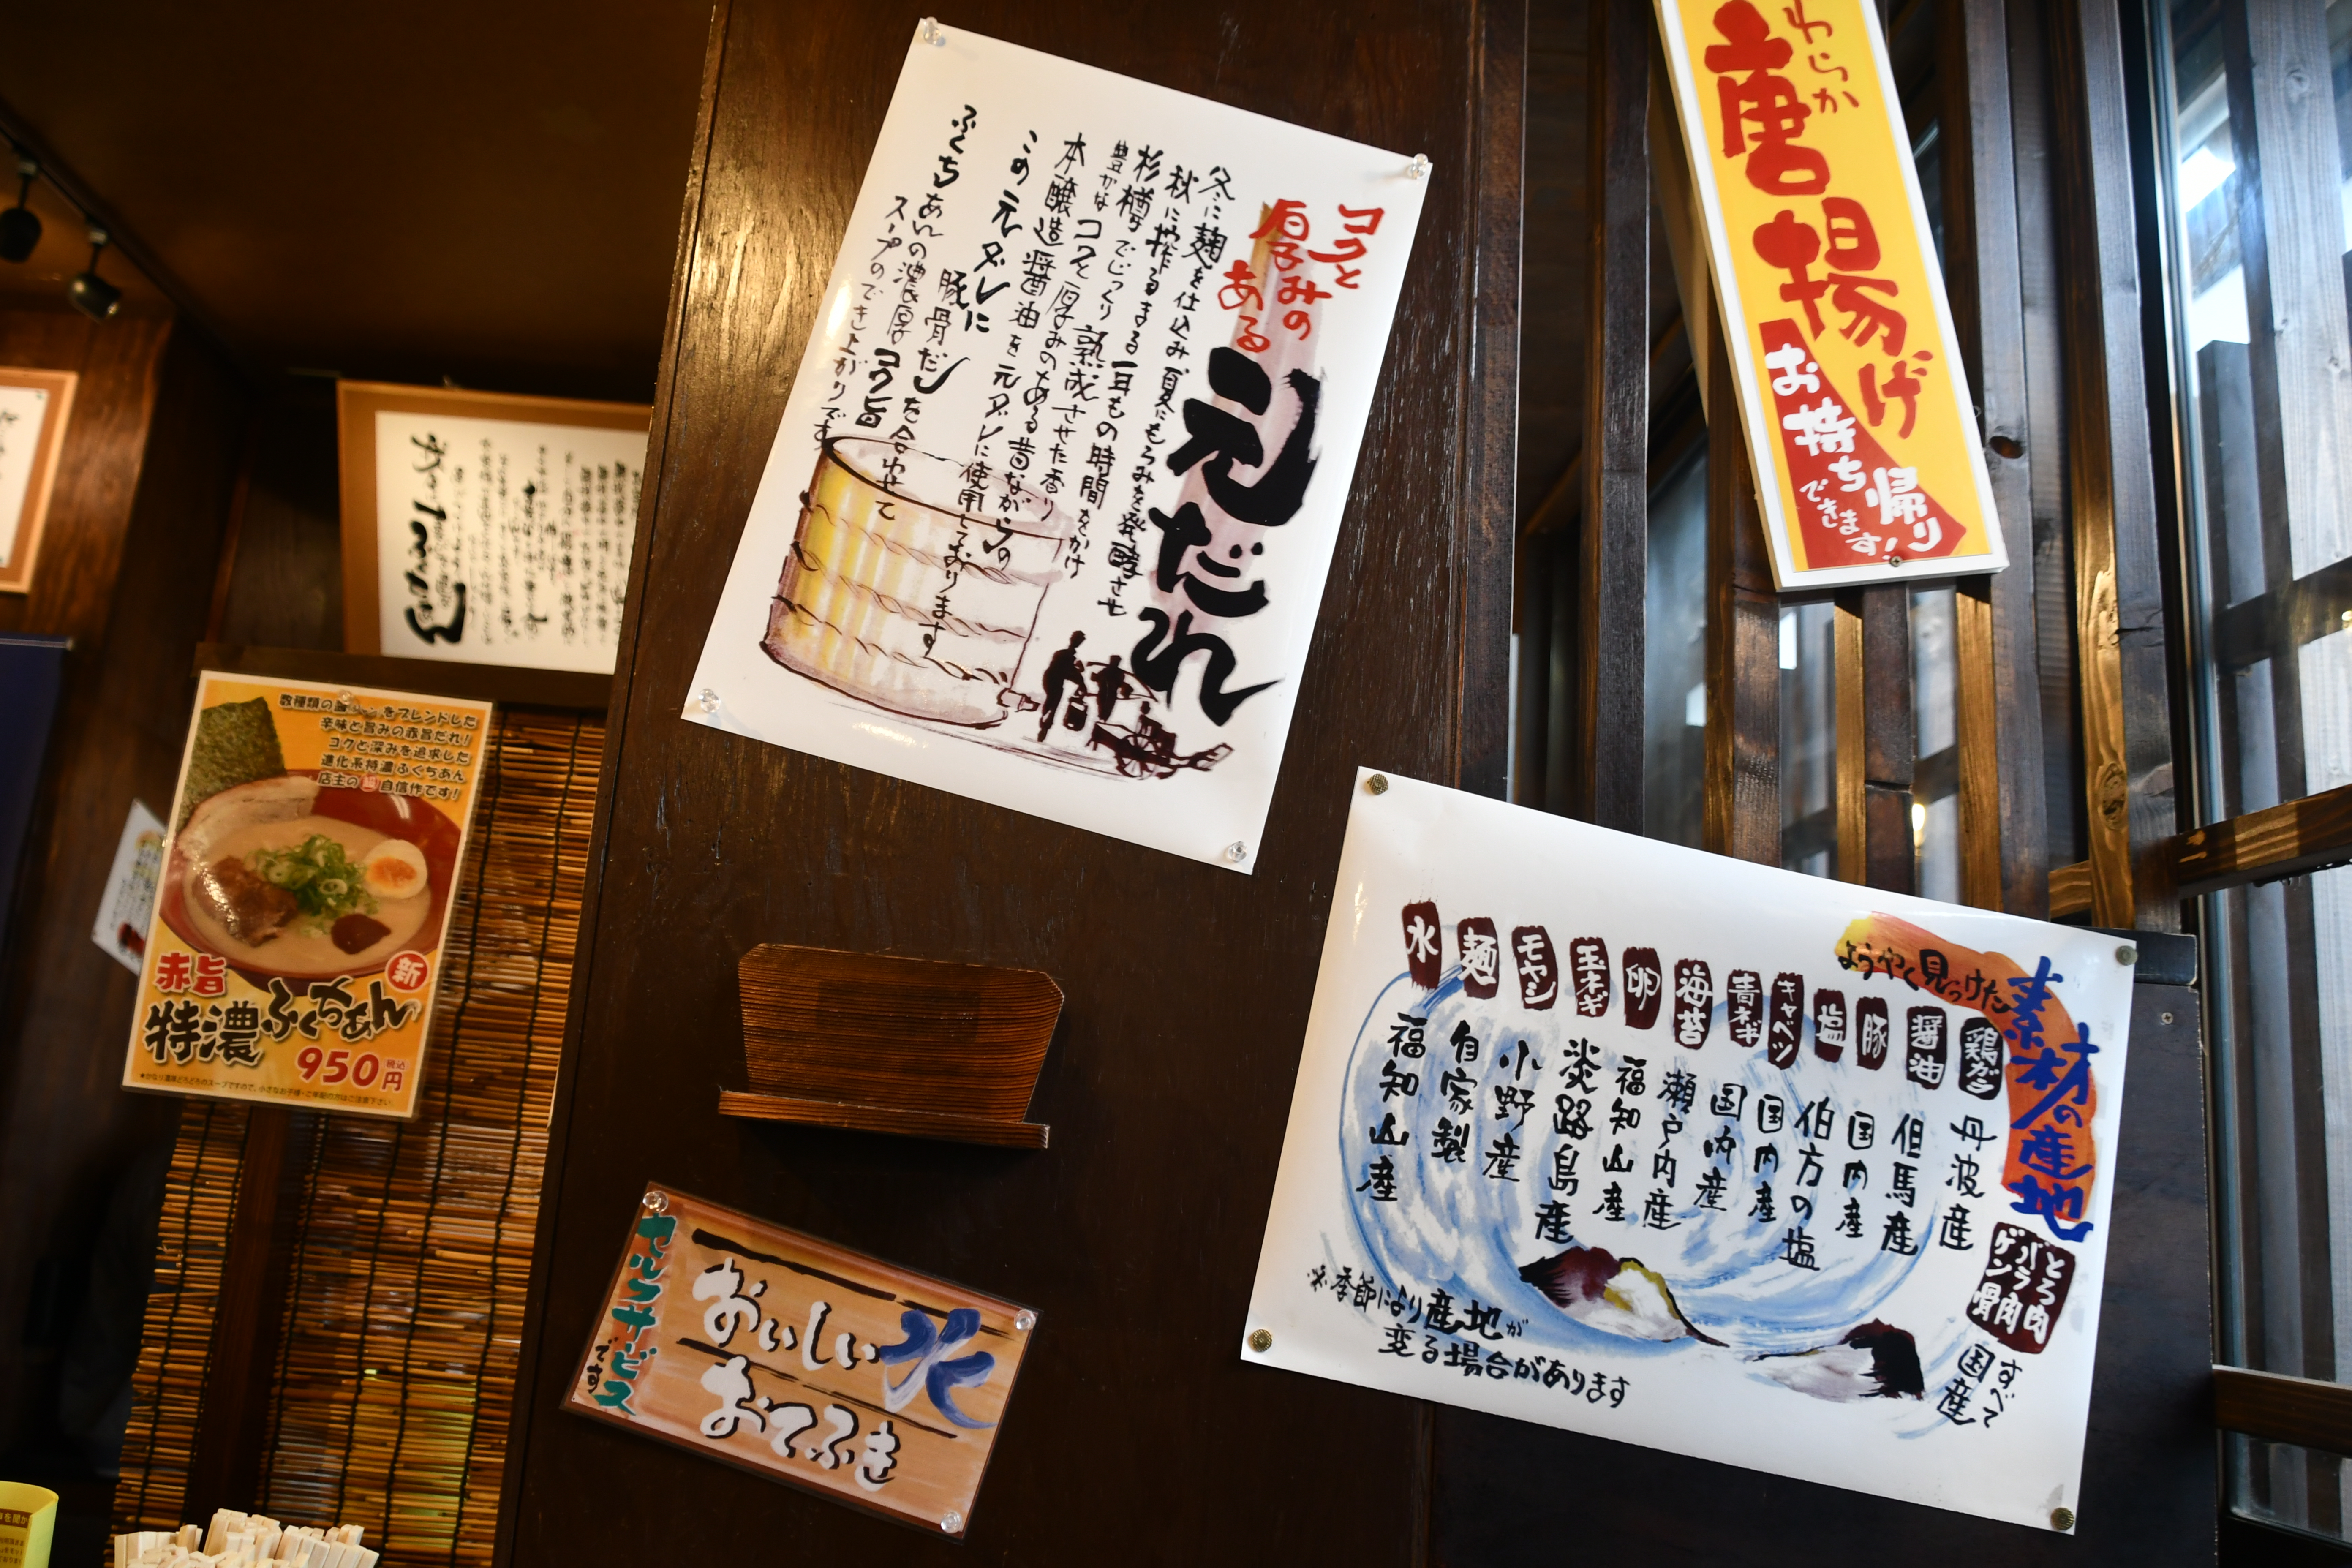 コクと
厚みの
ある
元だれ
冬に麹を仕込み夏にもろみを発酵させ
秋に搾るまる一年もの時間をかけ
杉樽でじっくり熟成させた香り
豊かなコクと厚みのある昔ながらの
本醸造醤油を元ダレに使用しております
この元ダレに
豚骨だしを合わせて
ふくちあんの濃厚コク旨
スープのでき上がりです
わらか
唐揚げ
お持ち帰り
できます!
ようやく見つけた
素材の産地
とろ肉
バラ肉
ゲン骨
すべて
国産
鶏ガラ 丹波産
醤油 但馬産
豚 国内産
塩 伯方の塩
キャベツ 国内産
青ネギ 国内産
海苔 瀬戸内産
卵 福知山産
玉ネギ 淡路島産
モヤシ 小野産
麺 自家製
水 福知山産
※季節により産地が
変る場合があります
数種類の
をブレンドした
辛味と旨みの赤旨だれ!
コクと深みを追求した
進化系特濃ふくちあん
店主の超自信作です!
赤旨
新
特濃ふくちあん
950円
税込
★かなり濃厚どろどろのスープですので、小さなお子様・ご年配の方はご注意下さい。
セルフサービス
です
おいしい水
おてふき